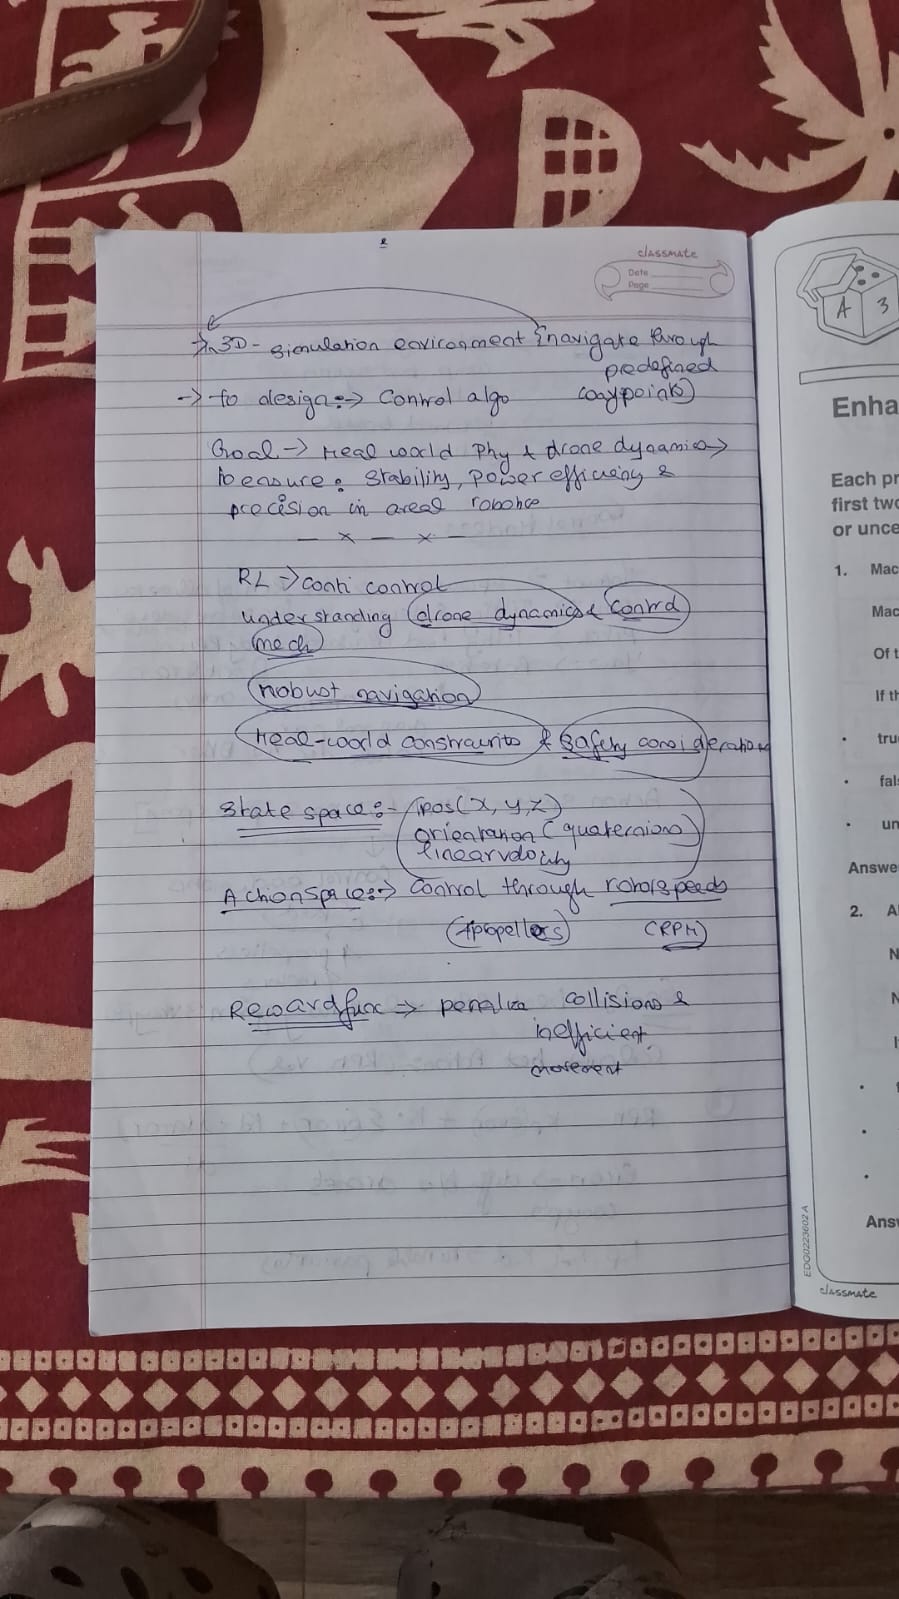 classmate
Date
Page
→ 3D - simulation environment {navigate through
predefined
waypoints}
→ to design :→ Control algo
Goal → real world Phy & drone dynamics →
to ensure : stability, power efficieny &
precision in areal robotics
— x — x —
RL → conti control
understanding drone dynamics & control
mech
robust navigation
real-world constraints & safety considerations
State space :- pos(x, y, z)
orientation (quaternions)
linear velocity
Action space :→ Control through rotor speeds
(4 propellers) (RPM)
Reward func → penalize collisions &
inefficient
movement
A 3
Enha
Each pr
first two
or unce
1. Mac
Mac
Of t
If th
• tru
• fal
• un
Answe
2. Al
N
N
I
Ans
EDG0223602 A
classmate